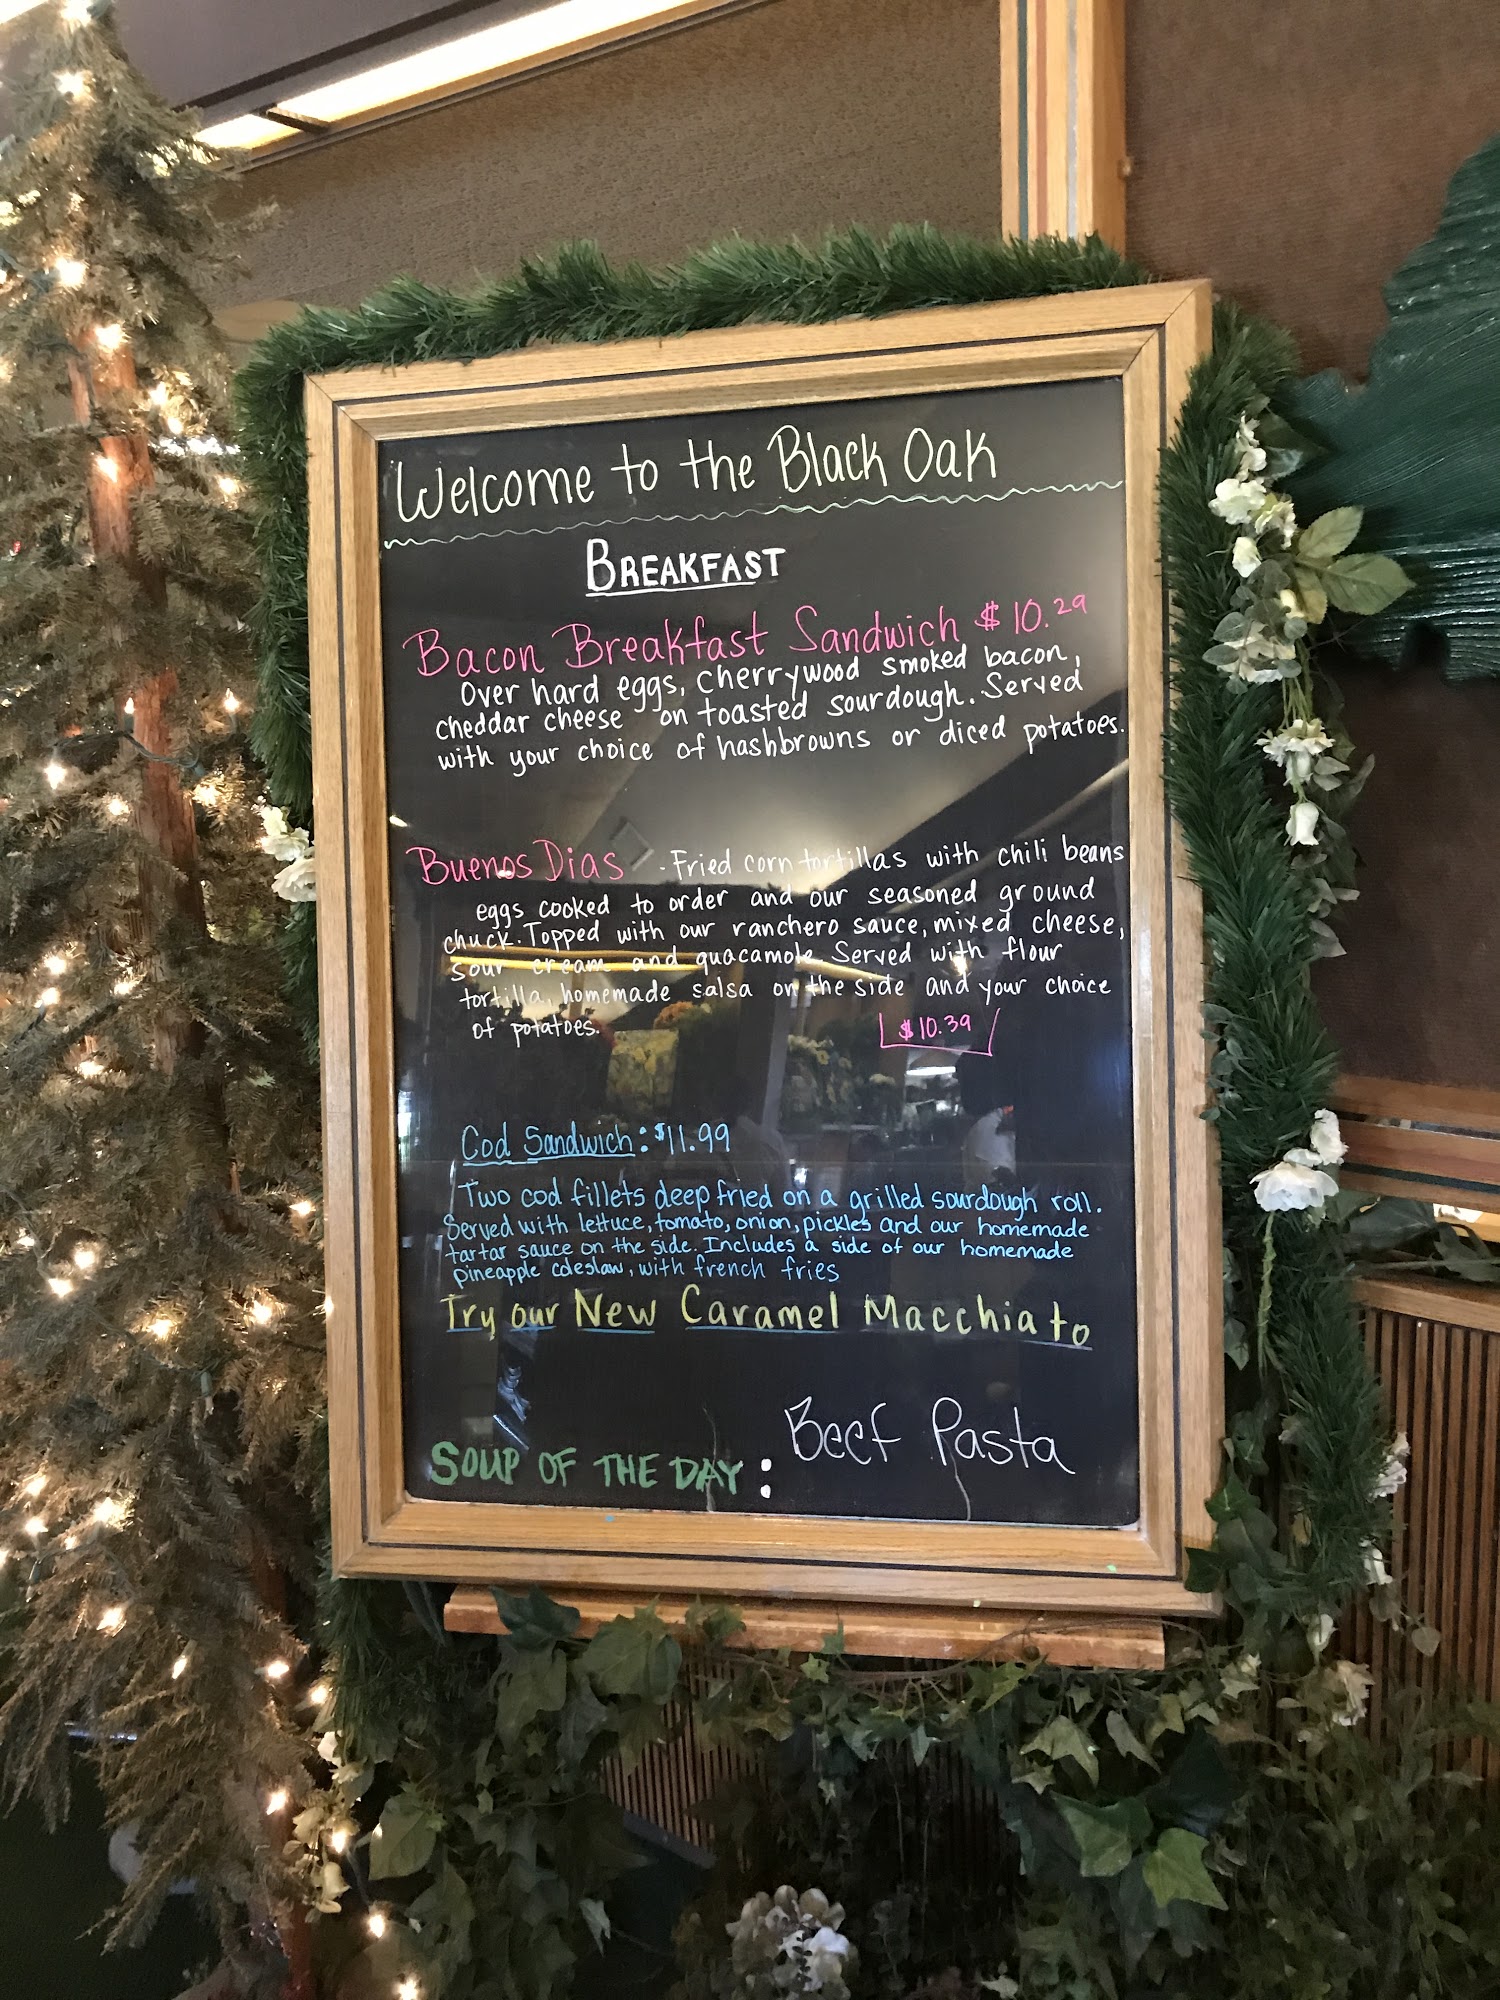 Welcome to the Black Oak
BREAKFAST
Bacon Breakfast Sandwich $10.29
Over hard eggs, cherrywood smoked bacon,
cheddar cheese on toasted sourdough. Served
with your choice of hashbrowns or diced potatoes.
Buenos Dias - Fried corn tortillas with chili beans
eggs cooked to order and our seasoned ground
chuck. Topped with our ranchero sauce, mixed cheese,
sour cream and guacamole. Served with flour
tortilla, homemade salsa on the side and your choice
of potatoes. $10.39
Cod Sandwich: $11.99
Two cod fillets deep fried on a grilled sourdough roll.
Served with lettuce, tomato, onion, pickles and our homemade
tartar sauce on the side. Includes a side of our homemade
pineapple coleslaw, with french fries
Try our New Caramel Macchiato
SOUP OF THE DAY: Beef Pasta